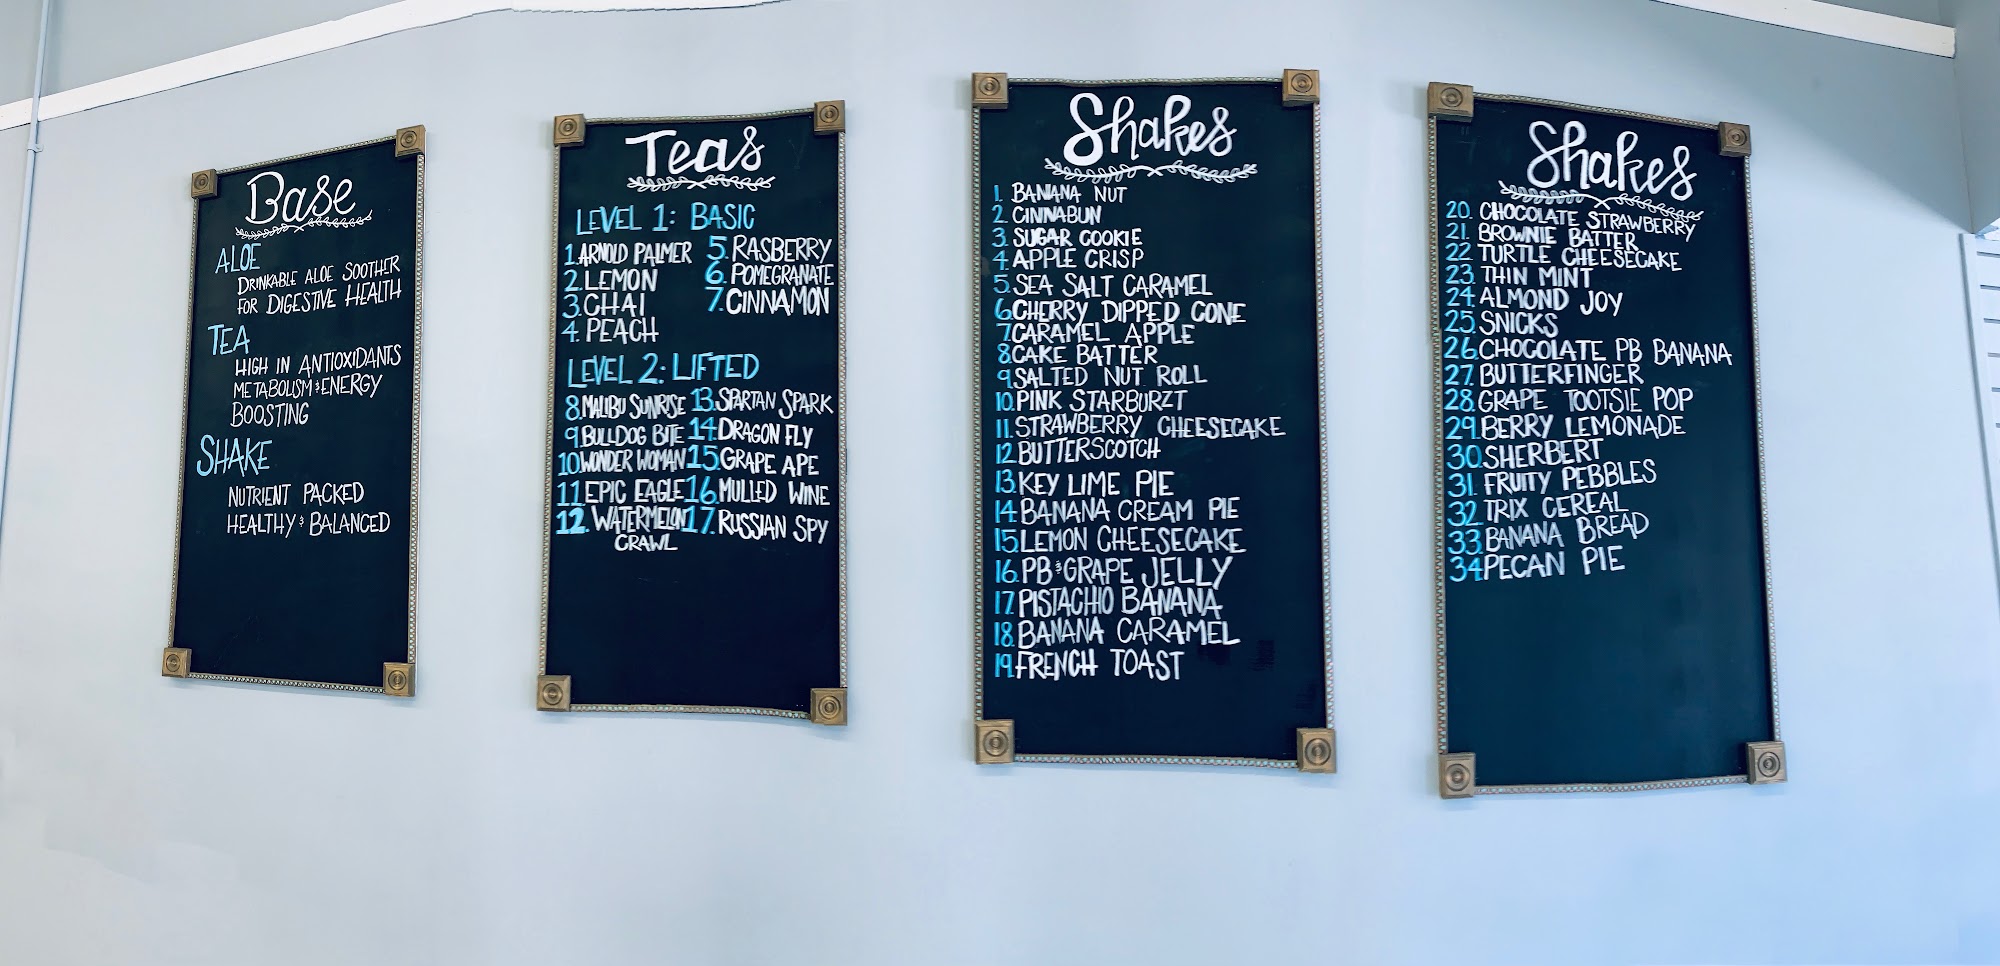 Base
ALOE
DRINKABLE ALOE SOOTHER
FOR DIGESTIVE HEALTH
TEA
HIGH IN ANTIOXIDANTS
METABOLISM & ENERGY
BOOSTING
SHAKE
NUTRIENT PACKED
HEALTHY & BALANCED
Teas
LEVEL 1: BASIC
1. ARNOLD PALMER
2. LEMON
3. CHAI
4. PEACH
5. RASBERRY
6. POMEGRANATE
7. CINNAMON
LEVEL 2: LIFTED
8. MALIBU SUNRISE
9. BULLDOG BITE
10. WONDER WOMAN
11. EPIC EAGLE
12. WATERMELON
CRAWL
13. SPARTAN SPARK
14. DRAGON FLY
15. GRAPE APE
16. MULLED WINE
17. RUSSIAN SPY
Shakes
1. BANANA NUT
2. CINNABUN
3. SUGAR COOKIE
4. APPLE CRISP
5. SEA SALT CARAMEL
6. CHERRY DIPPED CONE
7. CARAMEL APPLE
8. CAKE BATTER
9. SALTED NUT ROLL
10. PINK STARBURZT
11. STRAWBERRY CHEESECAKE
12. BUTTERSCOTCH
13. KEY LIME PIE
14. BANANA CREAM PIE
15. LEMON CHEESECAKE
16. PB & GRAPE JELLY
17. PISTACHIO BANANA
18. BANANA CARAMEL
19. FRENCH TOAST
Shakes
20. CHOCOLATE STRAWBERRY
21. BROWNIE BATTER
22. TURTLE CHEESECAKE
23. THIN MINT
24. ALMOND JOY
25. SNICKS
26. CHOCOLATE PB BANANA
27. BUTTERFINGER
28. GRAPE TOOTSIE POP
29. BERRY LEMONADE
30. SHERBERT
31. FRUITY PEBBLES
32. TRIX CEREAL
33. BANANA BREAD
34. PECAN PIE